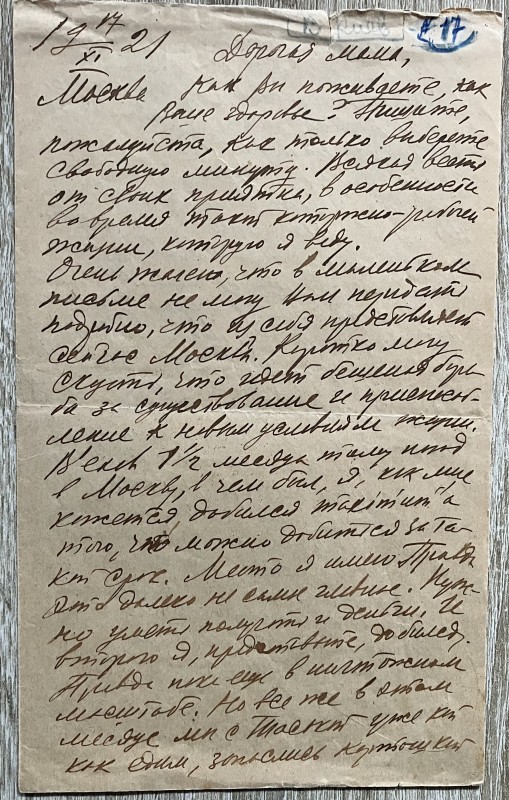 19 17/XI 21
№ 17
Дорогая мама,
Москва Как Вы поживаете, как
Ваше здоровье? Пишите,
пожалуйста, как только выберете
свободную минуту. Всякая весть
от своих приятна, в особенности
во время такой каторжно-рабочей
жизни, которую я веду.
Очень жалею, что в маленьком
письме не могу Вам передать
подробно, что из себя представляет
сейчас Москва. Коротко могу
сказать, что идет бешеная борь-
ба за существование и приспособ-
ление к новым условиям жизни.
Въехав 1 1/2 месяца тому назад
в Москву, в чем был, я, как мне
кажется, добился
того, что можно добиться за та-
кой срок. Место я имею. Правда
это далеко не самое главное. Нуж-
но уметь получать и деньги. И
второго я, представьте, добился.
Правда пока еще в ничтожном
масштабе. Но все же в этом
месяце мы с Таськой уже кой
как едим, запаслись картошкой